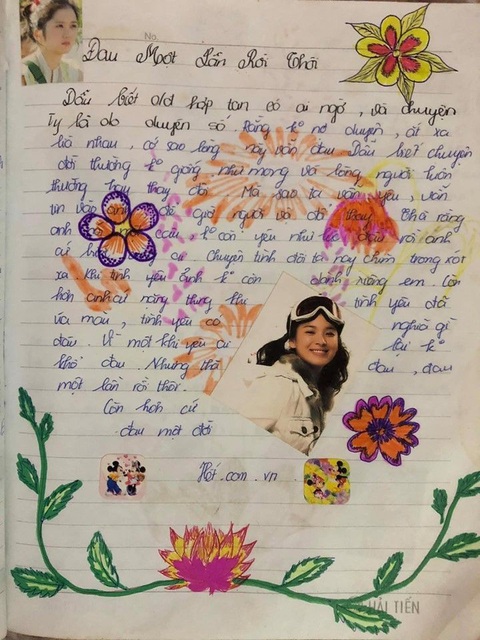 No.
Đau Một Lần Rồi Thôi
Dẫu biết hợp tan có ai ngờ, và chuyện
Ty là do duyên số. Rằng k° nợ duyên, ắt xa
lìa nhau, cớ sao lòng này vẫn đau. Dẫu biết chuyện
đời thường k° giống như mong và lòng người luôn
thường hay thay đổi. Mà sao ta vẫn yêu, vẫn
tin vào để người vô đổi thay. Thà rằng
anh câu, k° còn yêu như lúc đầu rồi anh
cứ chuyện tình đôi ta nay chìm trong xót
xa. Khi tình yêu anh k° còn dành riêng em. Còn
hơn anh cứ nặng thing khi tình yêu đã
úa màu, tình yêu có nghĩa gì
đâu. Vì một khi yêu ai k°
khổ đau. Nhưng thà đau, đau
một lần rồi thôi.
Còn hơn cứ
đau một đời
Hết.com.vn
HẢI TIẾN